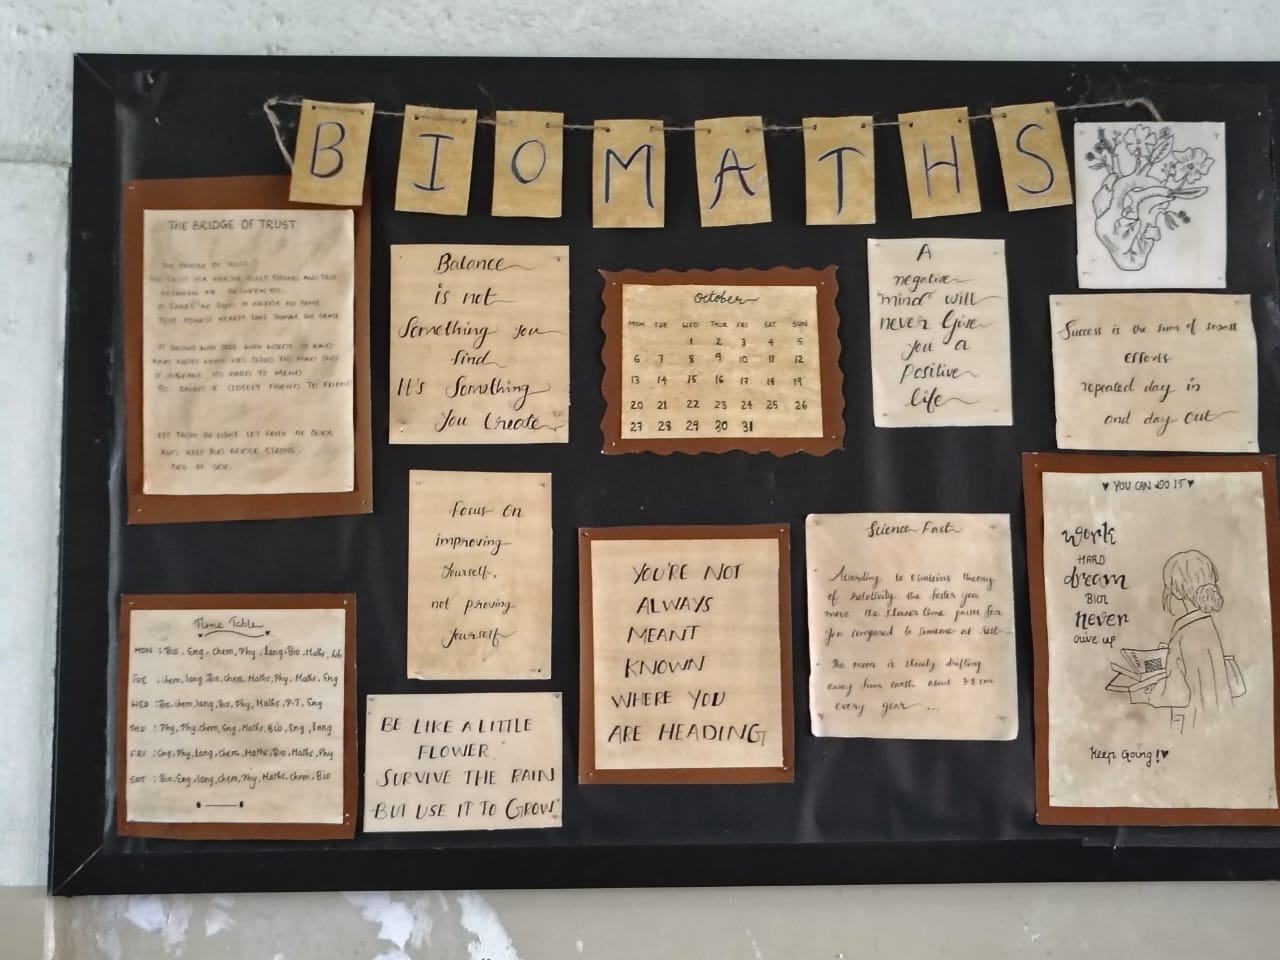 BIOMATHS
THE BRIDGE OF TRUST
THE BRIDGE OF TRUST
BETWEEN
LET TRUTH BE LIGHT, LET FAITH BE GUIDE
AND KEEP THIS BRIDGE STRONG.
SIDE BY SIDE.
Balance
is not
Something you
find
It's Something
You Create
October
MON TUE WED THUR FRI SAT SUN
1 2 3 4 5
6 7 8 9 10 11 12
13 14 15 16 17 18 19
20 21 22 23 24 25 26
27 28 29 30 31
A
negative
mind will
never Give
you a
Positive
life
Success is the sum of small
efforts
repeated day in
and day out
Focus on
improving
Yourself,
not proving
Yourself
YOU'RE NOT
ALWAYS
MEANT
KNOWN
WHERE YOU
ARE HEADING
Science Fact
According to Einsteins theory
of relativity the faster you
move the slower time passes for
you compared to someone at rest...
• The moon is slowly drifting
away from earth about 3.8 cm
every year ...
♥ YOU CAN DO IT ♥
work
HARD
dream
BIG
never
GIVE UP
Keep Going!♥
Time Table
MON : Bio, Eng, Chem, Phy, lang, Bio, Maths, Lab
TUE : Chem, lang, Bio, Chem, Maths, Phy, Maths, Eng
WED : Bio, Chem, lang, Bio, Phy, Maths, P.T, Eng
THU : Phy, Phy, Chem, Eng, Maths, Bio, Eng, lang
FRI : Eng, Phy, lang, Chem, Maths, Bio, Maths, Phy
SAT : Bio, Eng, lang, Chem, Phy, Maths, Chem, Bio
BE LIKE A LITTLE
FLOWER.
SURVIVE THE RAIN
BUT USE IT TO GROW